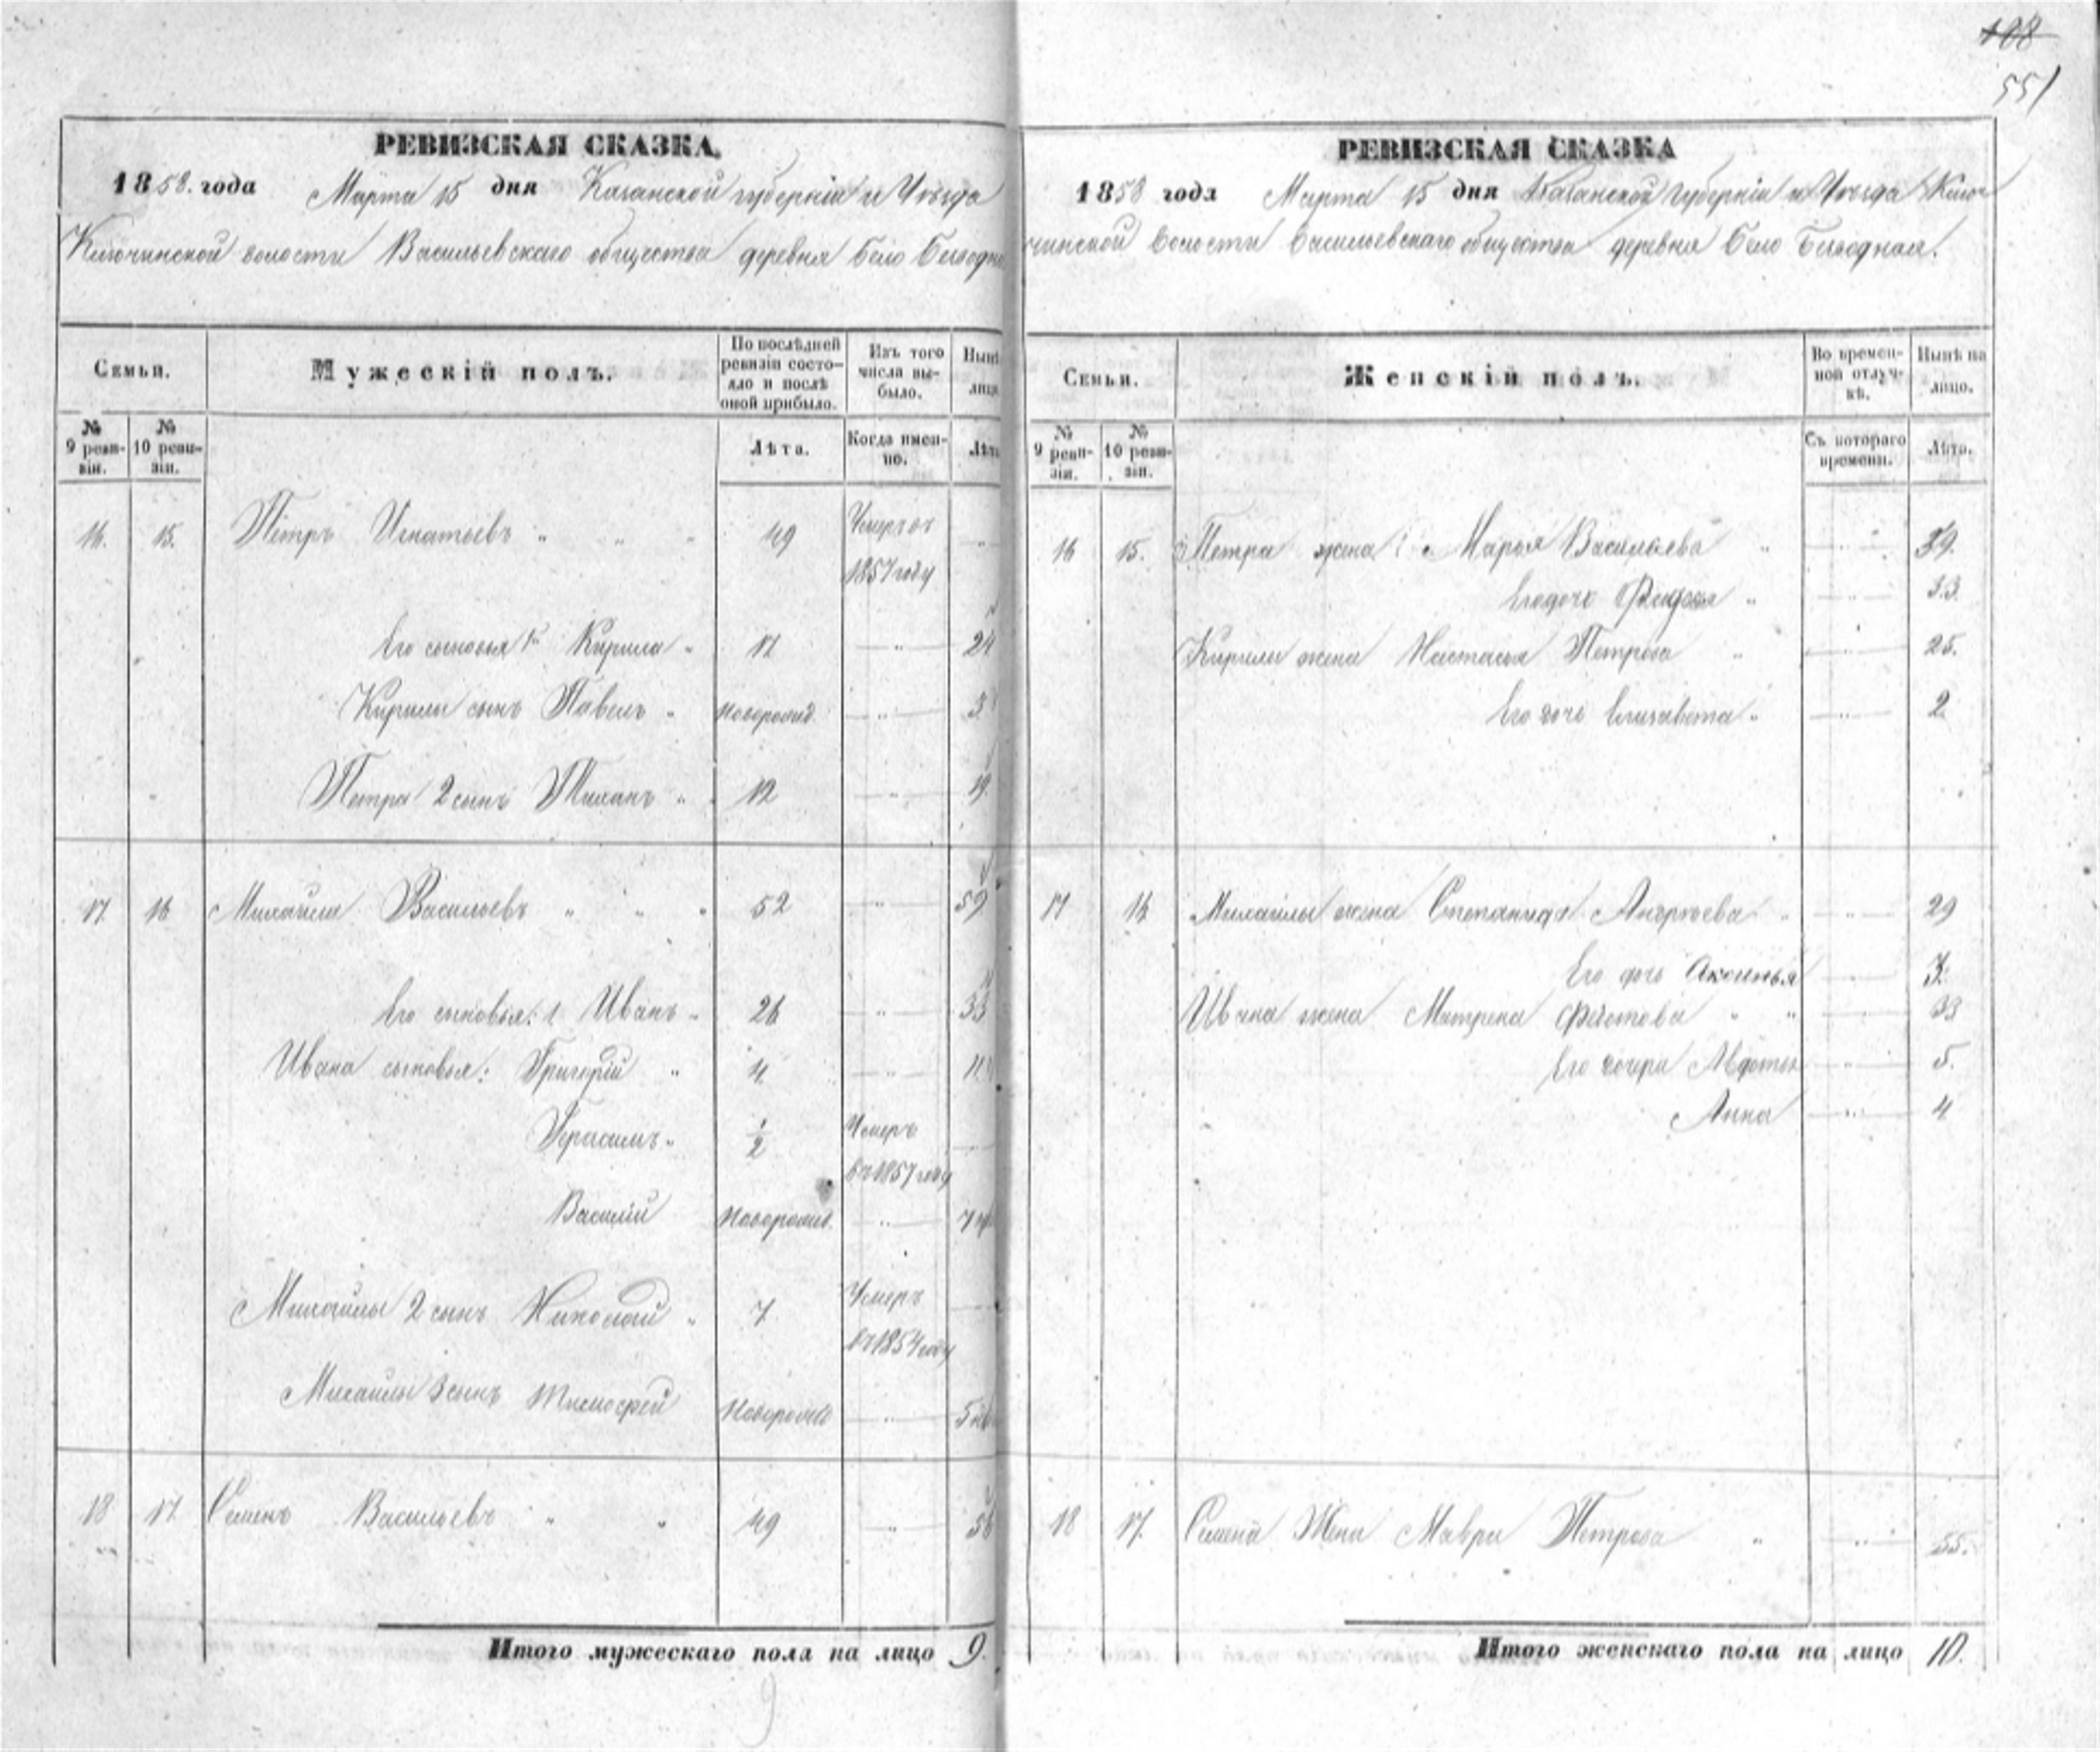 108
551
РЕВИЗСКАЯ СКАЗКА.
1858. года Марта 15 дня Казанской губерніи и Уѣзда
Ключинской волости Васильевскаго общества деревня Село Безводно
Семьи.
Мужескій полъ.
По послѣдней ревизіи состояло и послѣ оной прибыло.
Изъ того числа выбыло.
Нынѣ лицо
№ 9 ревизіи.
№ 10 ревизіи.
Лѣта.
Когда именно.
Лѣта
16. 15. Петръ Игнатьевъ " " " 49 Умеръ въ
1857 году
Его сыновья 1й Кирила " 17 " 24
Кирилы сынъ Павелъ " новорожд. " 3
Петра 2 сынъ " 12 " 19.
17 16 Михайла Васильевъ " " " 52 " 59
Его сыновья: 1 Иванъ " 26 " 33
Ивана сыновья: Григорій " 4 " 11
Герасимъ " 1/2 Умеръ
въ 1857 году
Василій Новорожд. " 7
Михайлы 2 сынъ Николай " 7. Умеръ
въ 1854 году
Михайлы 3 сынъ Тимофей Новорожд " 5
18 17. Семенъ Васильевъ " " 49 " 56
Итого мужескаго пола на лицо 9.
9
РЕВИЗСКАЯ СКАЗКА
1858 года Марта 15 дня Казанской Губерніи и Уѣзда Ключ
чинской Волости Васильевскаго общества деревня Село Безводная.
Семьи.
Женскій полъ.
Во временной отлучкѣ.
Нынѣ на лицо.
№ 9 ревизіи.
№ 10 ревизіи.
Съ котораго времени.
Лѣта.
16 15. Петра жена Марья Васильева " " 39.
Его дочь " " 33.
Кирилы жена Настасья Петрова " " 25.
Его дочь Елизавета " " 2.
17 16. Михайлы жена Степанида Андреева " " 29
Его дочь Аксинья " 3.
Ивана жена Матрена " " " 33
Его дочери Авдотья " 5.
Анна " 4
18 17. Семена Жена Мавра Петрова " " 55.
Итого женскаго пола на лицо 10.